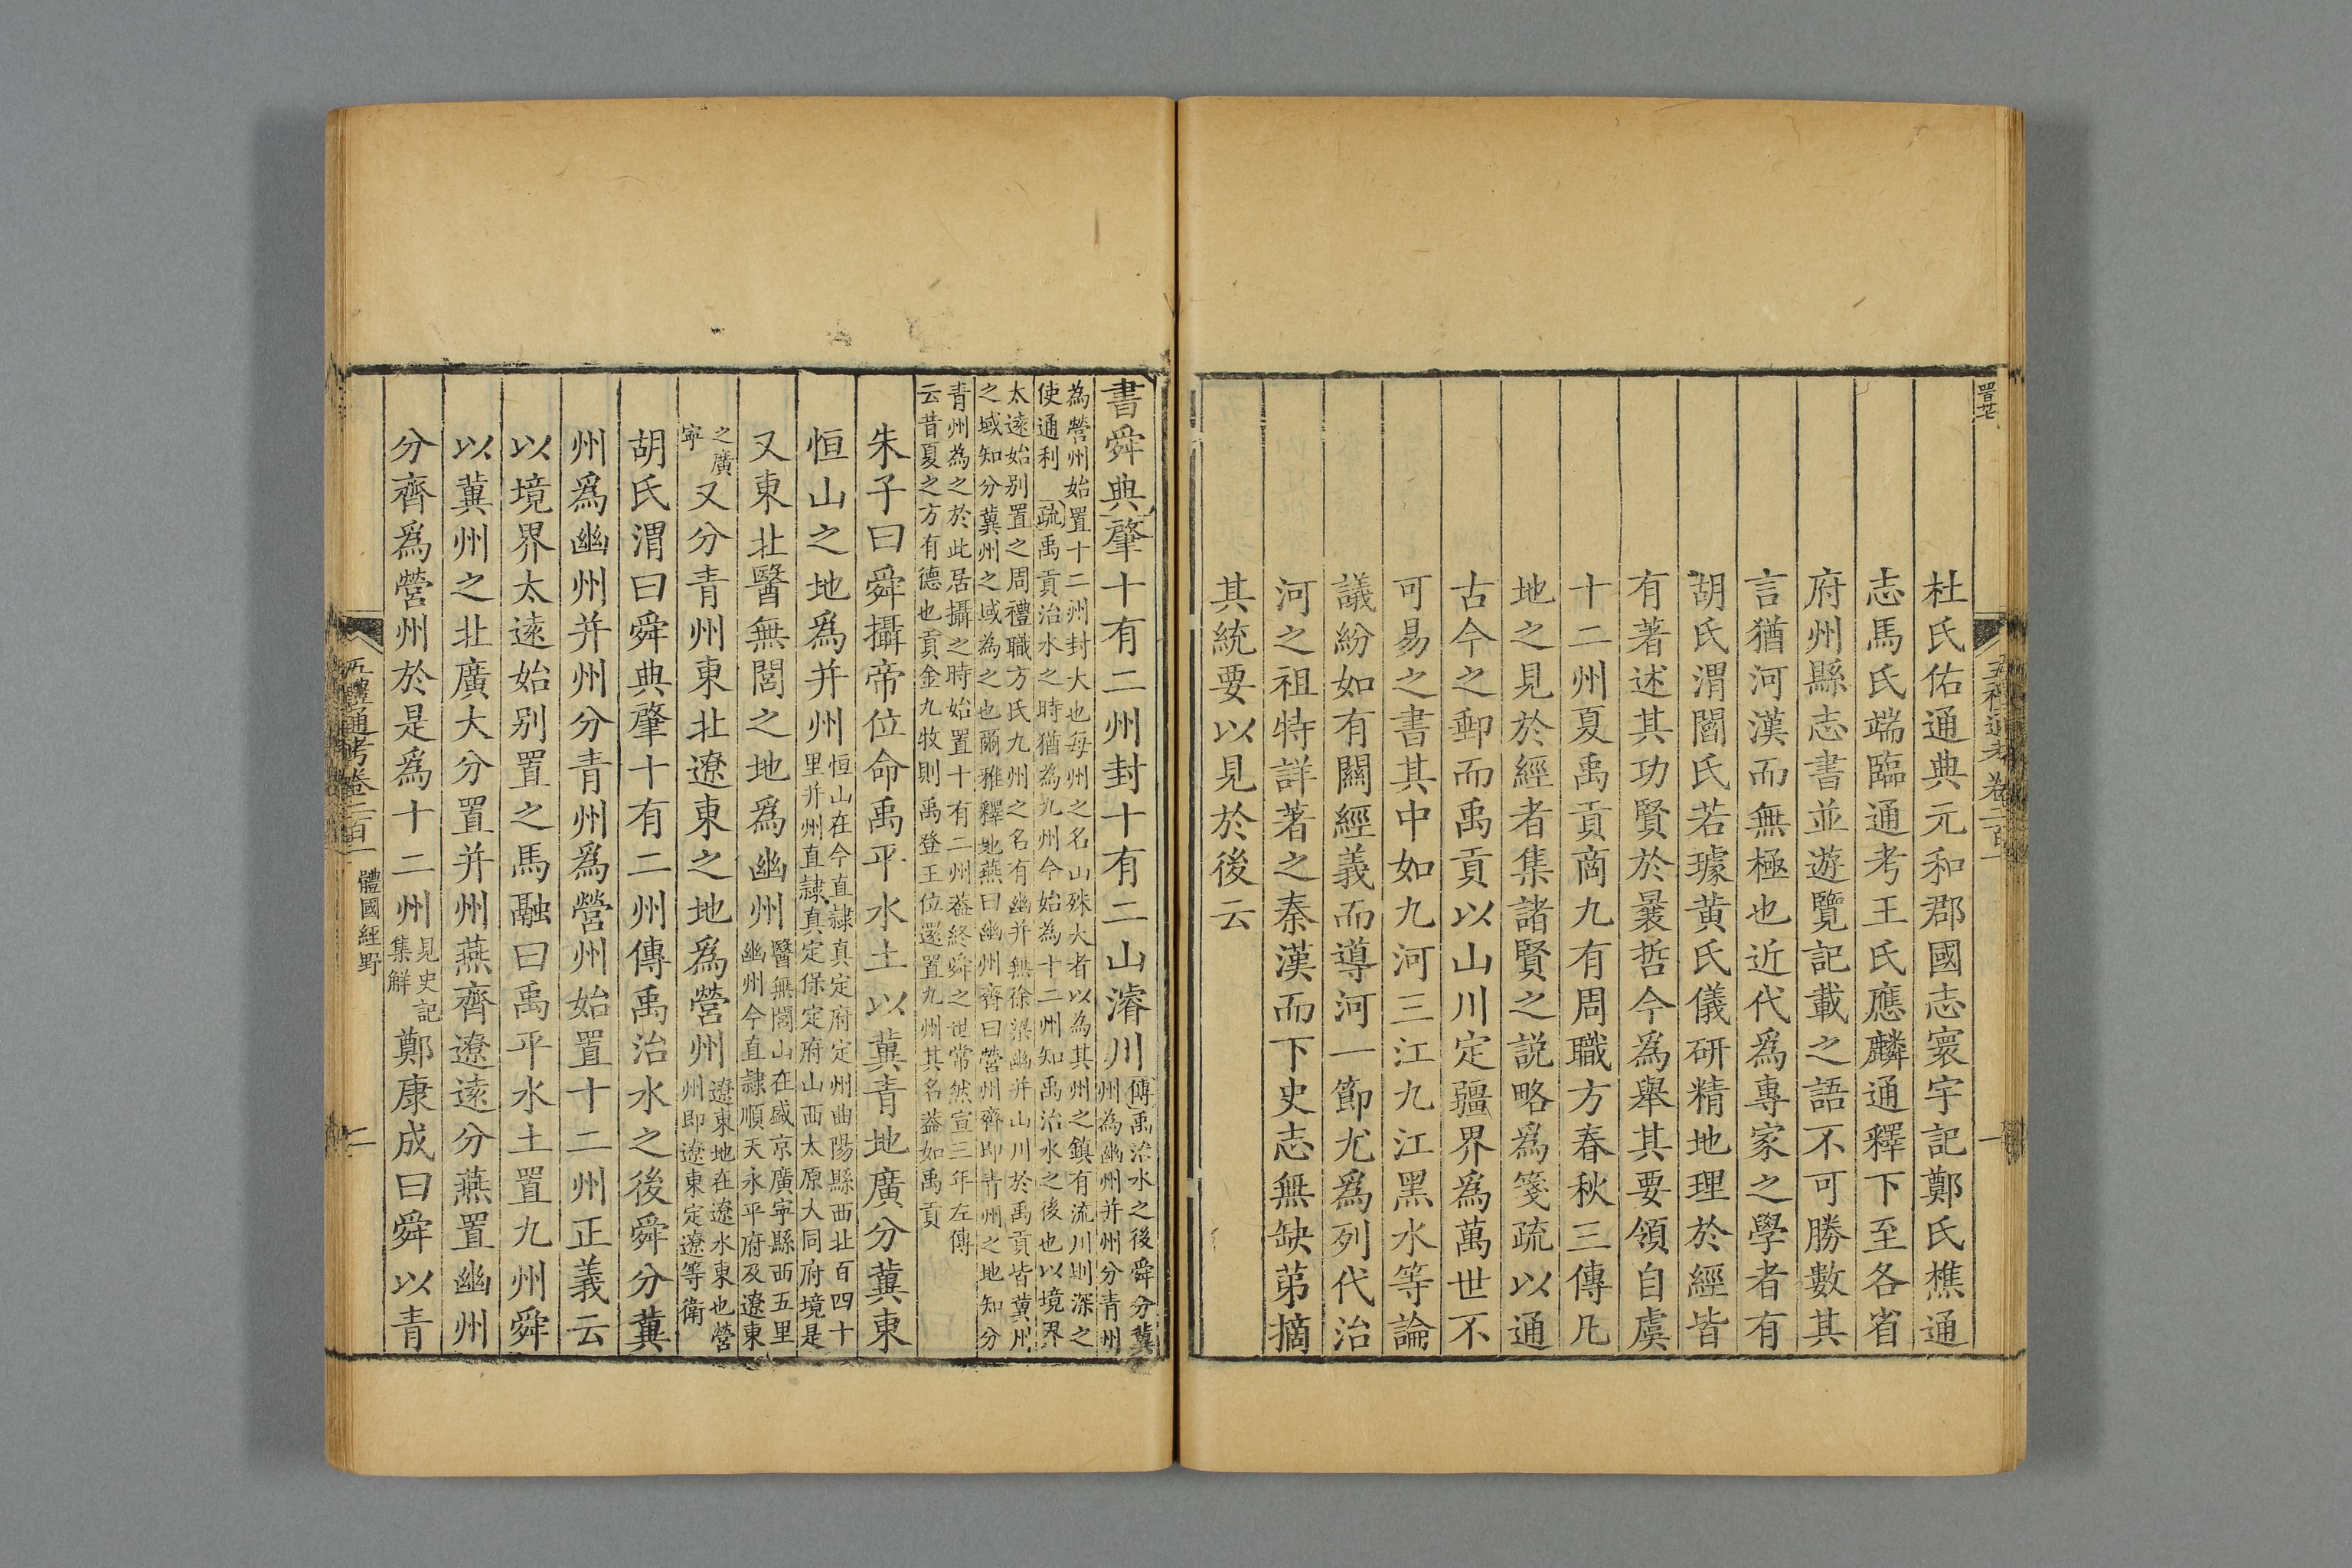 五禮通考 卷二百一
一
杜氏佑通典元和郡國志寰宇記鄭氏樵通
志馬氏端臨通考王氏應麟通釋下至各省
府州縣志書並遊覽記載之語不可勝數其
言猶河漢而無極也近代爲專家之學者有
胡氏渭閻氏若璩黃氏儀研精地理於經皆
有著述其功賢於曩哲今爲舉其要領自虞
十二州夏禹貢商九有周職方春秋三傳凡
地之見於經者集諸賢之説略爲箋疏以通
古今之郵而禹貢以山川定疆界爲萬世不
可易之書其中如九河三江九江黑水等論
議紛如有關經義而導河一節尤爲列代治
河之祖特詳著之秦漢而下史志無缺苐摘
其統要以見於後云
書舜典肇十有二州封十有二山濬川傳禹治水之後舜分冀
州為幽州并州分青州
為營州始置十二州封大也每州之名山殊大者以為其州之鎮有流川則深之
使通利 疏禹貢治水之時猶為九州今始為十二州知禹治水之後也以境界
太遠始别置之周禮職方氏九州之名有幽并無徐梁幽并山川於禹貢皆冀州
之域知分冀州之域為之也爾雅釋地燕曰幽州齊曰營州齊即青州之地知分
青州為之於此居攝之時始置十有二州葢終舜之世常然宣三年左傳
云昔夏之方有德也貢金九牧則禹登王位還置九州其名葢如禹貢
朱子曰舜攝帝位命禹平水土以冀青地廣分冀東
恒山之地爲并州恒山在今直隷真定府定州曲陽縣西北百四十
里并州直隷真定保定府山西太原大同府境是
又東北醫無閭之地爲幽州醫無閭山在盛京廣寧縣西五里
幽州今直隷順天永平府及遼東
之廣
寧
又分青州東北遼東之地爲營州遼東地在遼水東也營
州即遼東定遼等衛
胡氏渭曰舜典肇十有二州傳禹治水之後舜分冀
州爲幽州并州分青州爲營州始置十二州正義云
以境界太遠始别置之馬融曰禹平水土置九州舜
以冀州之北廣大分置并州燕齊遼遠分燕置幽州
分齊爲營州於是爲十二州見史記
集解
鄭康成曰舜以青
五禮通考卷二百一 體國經野
二